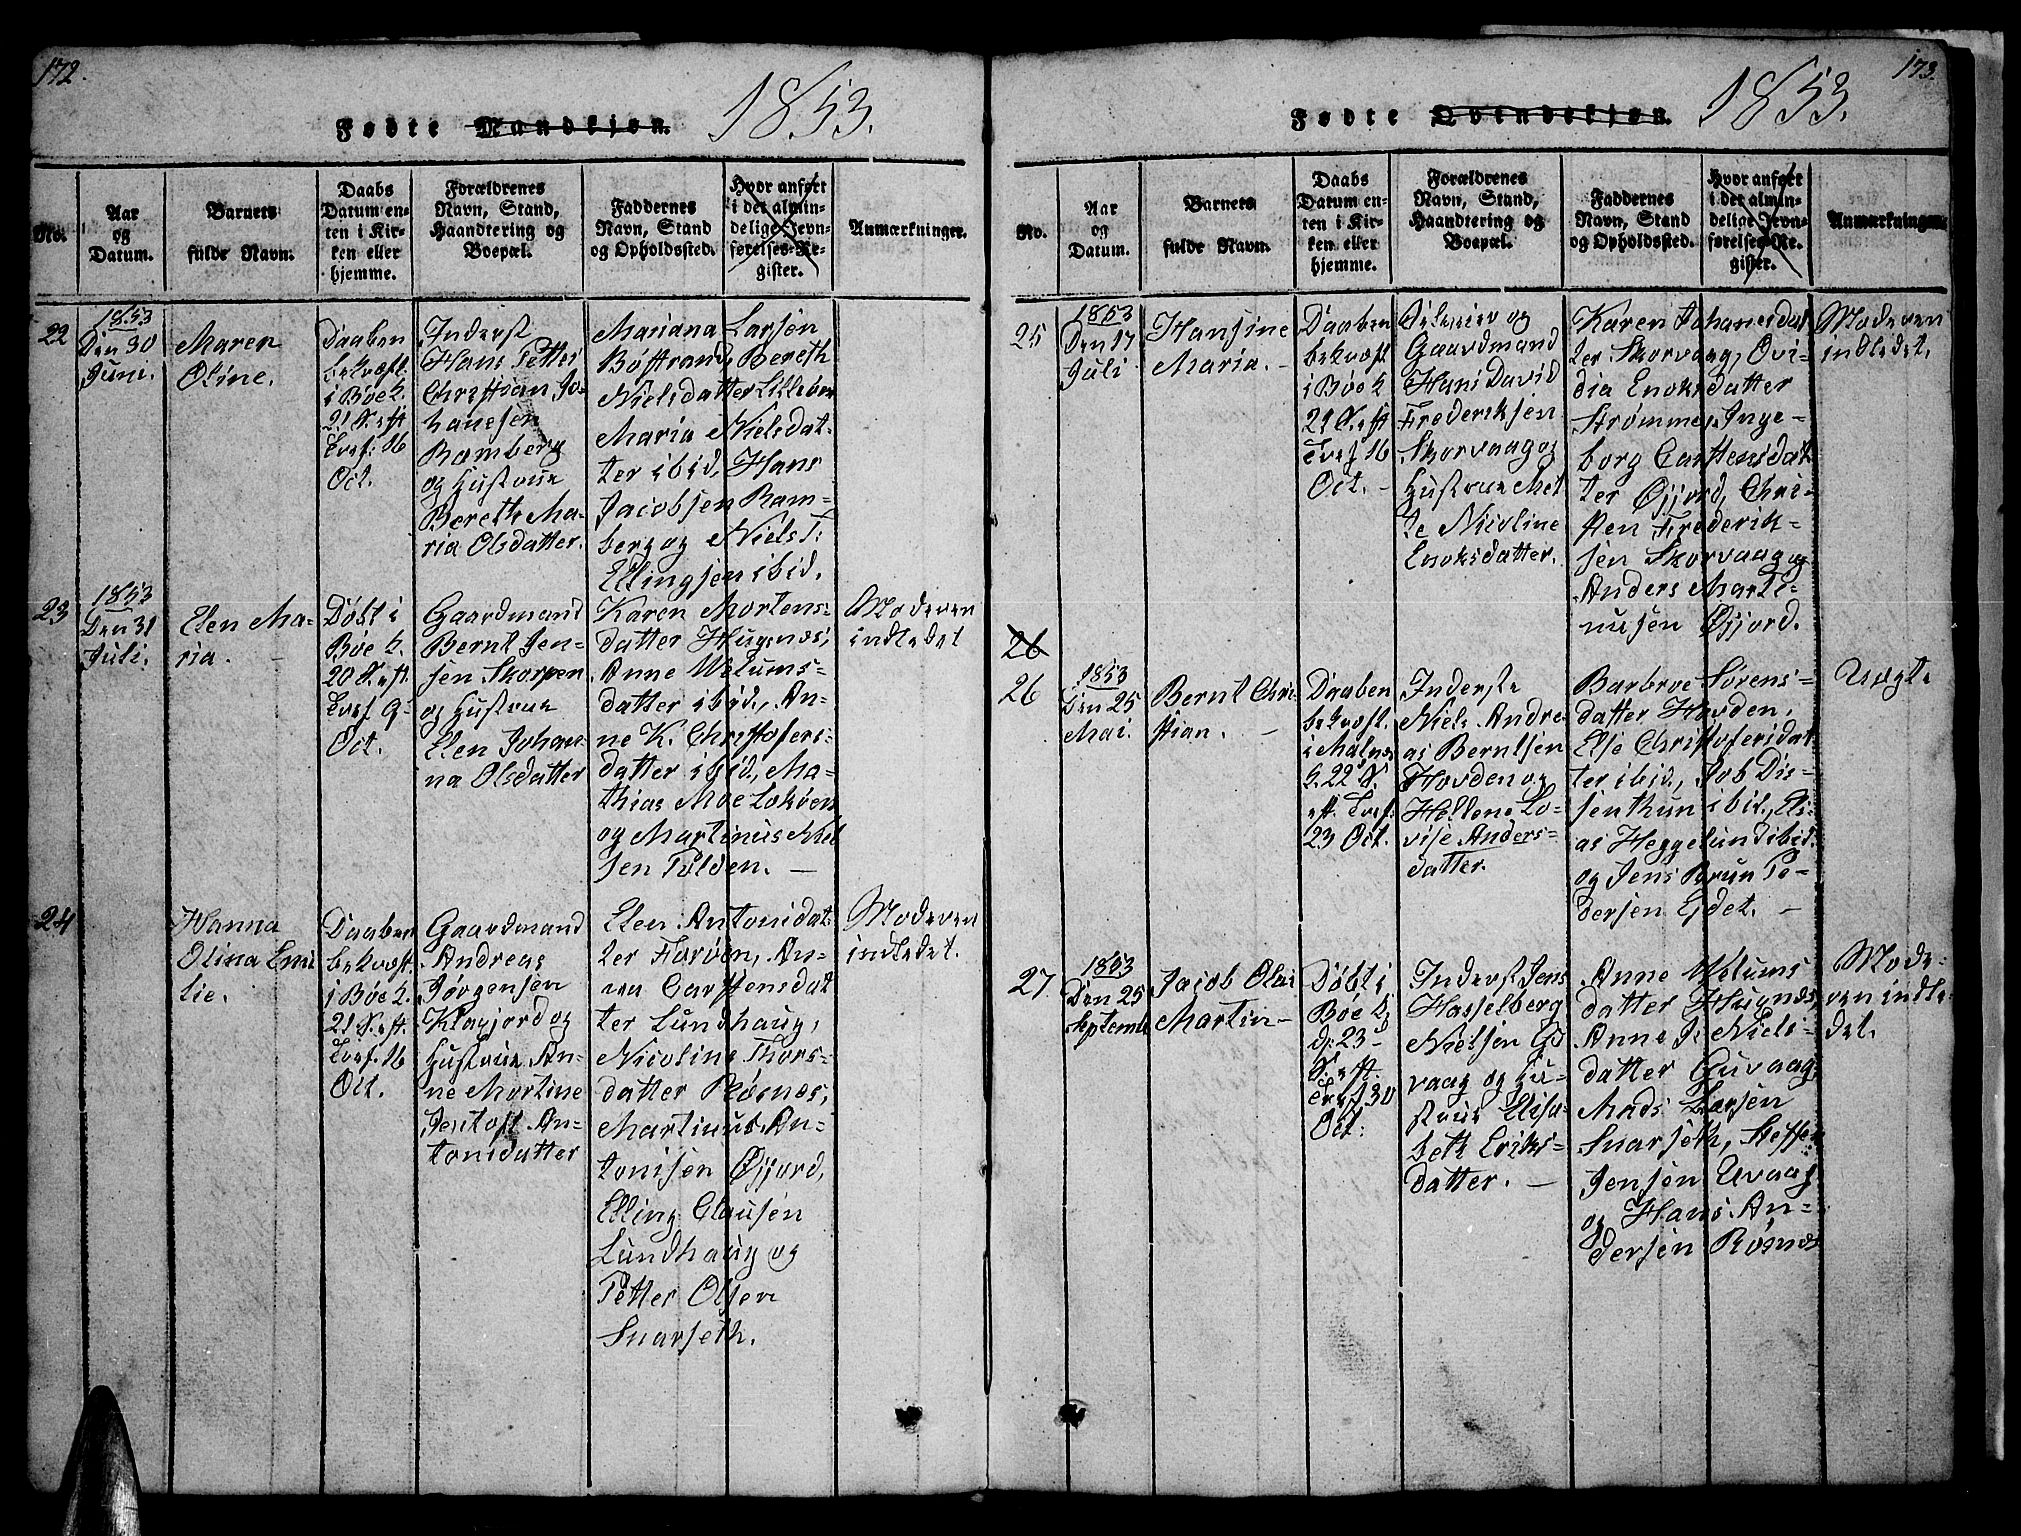 172.
Fødte Mandkjøn.
1853.
No.
Aar
og
Datum.
Barnets
fulde Navn.
Daabs
Datum en-
ten i Kir-
ken eller
hjemme.
Forældrenes
Navn, Stand,
Haandtering og
Boepæl.
Faddernes
Navn, Stand
og Opholdssted.
Hvor anført
i det almin-
delige Jevn-
førelses-Re-
gister.
Anmærkninger.
22
1853
Den 30
Juni.
Maren
Oline.
Daaben
bekræft.
i Bøe K.
21 S. eft
Tref: 16
Oct.
Inderst
Hans Petter
Christian Jo-
hanesen
Ramberg
og Hustrue
Bereth Ma-
ria Olsdatter.
Mariana Larsen
Bøstrand, Bereth
Nielsdatter Lilleøen
Maria Nielsdat-
ter ibid, Hans
Jacobsen Ram-
berg og Niels T:
Ellingsen ibid.
23
1853
Den 31
Juli.
Elen Ma-
ria.
Døbt i
Bøe K.
20 S. eft.
Tref 9-
Oct.
Gaardmand
Bernt Jen-
sen Skorpen
og Hustrue
Elen Johan-
na Olsdatter
Karen Mortens-
datter Hugnæs,
Anne Welums-
datter ibid, An-
ne K. Christofers-
datter ibid, Ma-
thias Moe Lokøen
og Martinus Niel
sen Tulden. —
Moderen
indledet
24
Hanna
Olina Emi
lie.
Daaben
bekræft.
i Bøe K.
21 S. eft.
Tref. 16
Oct.
Gaardmand
Andreas
Jørgensen
Klagjord og
Hustrue An-
ne Martine
Jentoft An-
tonidatter
Elen Antonidat
ter Farøen, An-
na Carstensdat
ter Lundhaug,
Nicoline Thors-
datter Røsnes,
Martinus An-
tonisen Øjjord,
Elling Clausen
Lundhaug og
Petter Olsen
Snarseth.
Moderen
indledet.
173.
Fødte Qvindekjøn.
1853.
No.
Aar
og
Datum.
Barnets
fulde Navn.
Daabs
Datum en-
ten i Kir-
ken eller
hjemme.
Forældrenes
Navn, Stand,
Haandtering og
Boepæl.
Faddernes
Navn, Stand
og Opholdssted.
Hvor anført
i det almin-
delige Jevn-
førelses-Re-
gister.
Anmærkninger.
25
1853
Den 17
Juli
Hansine
Maria. -
Daaben
bekræft
i Bøe K
21 S. eft
Tref 16
Oct. -
og
Gaardmand
Hans David
Frederiksen
Skorvaag og
Hustrue Met
te Nicoline
Enoksdatter.
Karen Johanesdat
ter Skorvaag, Ovi-
dia Enoksdatter
Strømme, Inge-
borg Carstensdat
ter Øjjord, Chri-
sten Frederik-
sen Skorvaag og
Anders Marti-
nusen Øjjord.
Moderen
indledet.
26
26
1853
Den 25
Mai.
Bernt Chri-
stian. -
Daaben
bekræft.
i Malnes
K. 22 S.
eft. Tref.
23 Oct.
Inderste
Niels Andre
as Berntsen
Hovden og
Hellene Lo-
vise Anders-
datter.
Barbroe Sørens-
datter Hovden,
Else Christofersdat
ter ibid, Job Dis-
senthun ibid, Eli-
as Heggelund ibid.
og Jens Brun Pe-
dersen Gdet. —
Uægte
27.
1853
Den 25
Septemb
Jacob Olai
Martin -
Døbt i
Bøe K
d: 23-
S. eft
Tref 30
Oct.
Inderst Jens
Hasselberg
Nielsen Gu
vaag og Hu-
strue Elisa-
beth Eriks-
datter. —
Anne Welums
datter Hugnæs,
Anne J. Niels-
datter Guvaag
Mads Larsen
Snarseth, Steffen
Jensen Uvaag
og Hans An-
dersen Røsnes
Mode-
ren indle-
det.